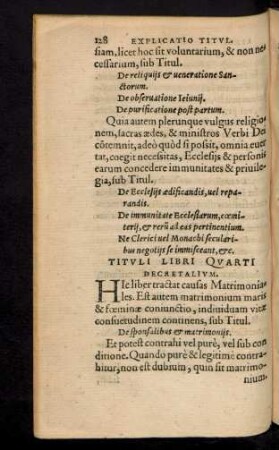 128 EXPLICATIO TITVL.
siam, licet hoc sit voluntarium, & non ne
cessarium, sub Titul.
De reliquijs & ueneratione San-
ctorum.
De obseruatione Ieiunij.
De purificatione post partum.
Quia autem plerunque vulgus religio
nem, sacras ædes, & ministros Verbi Dei
cōtemnit, adeò quòd si possit, omnia euer
tat, coegit necessitas, Ecclesijs & personis
earum concedere immunitates & priuile
gia, sub Titul.
De Ecclesijs ædificandis, uel repa-
randis.
De immunitate Ecclesiarum, cœmi
terij, & rerū ad eas pertinentium.
Ne Clerici uel Monachi seculari-
bus negotijs se immisceant, &c.
TITVLI LIBRI QVARTI
DECRETALIVM.
HIc liber tractat causas Matrimonia
les. Est autem matrimonium maris
& fœminæ coniunctio, indiuiduam vitæ
consuetudinem continens, sub Titul.
De sponsalibus & matrimonijs.
Et potest contrahi vel purè, vel sub con
ditione. Quando purè & legitimè contra-
hitur, non est dubium, quin sit matrimo-
nium